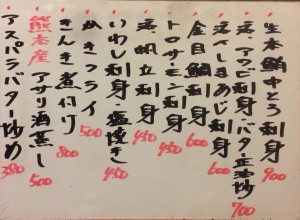 生本鮪中とろ刺身 900
活アワビ刺身・バター正油炒 700
活〆しまあじ刺身 600
金目鯛刺身 600
トロサーモン刺身 450
活帆立刺身 450
いわし刺身・塩焼き 450
かきフライ 500
きんき煮付け 800
熊本産 アサリ酒蒸し 500
アスパラバター炒め 380